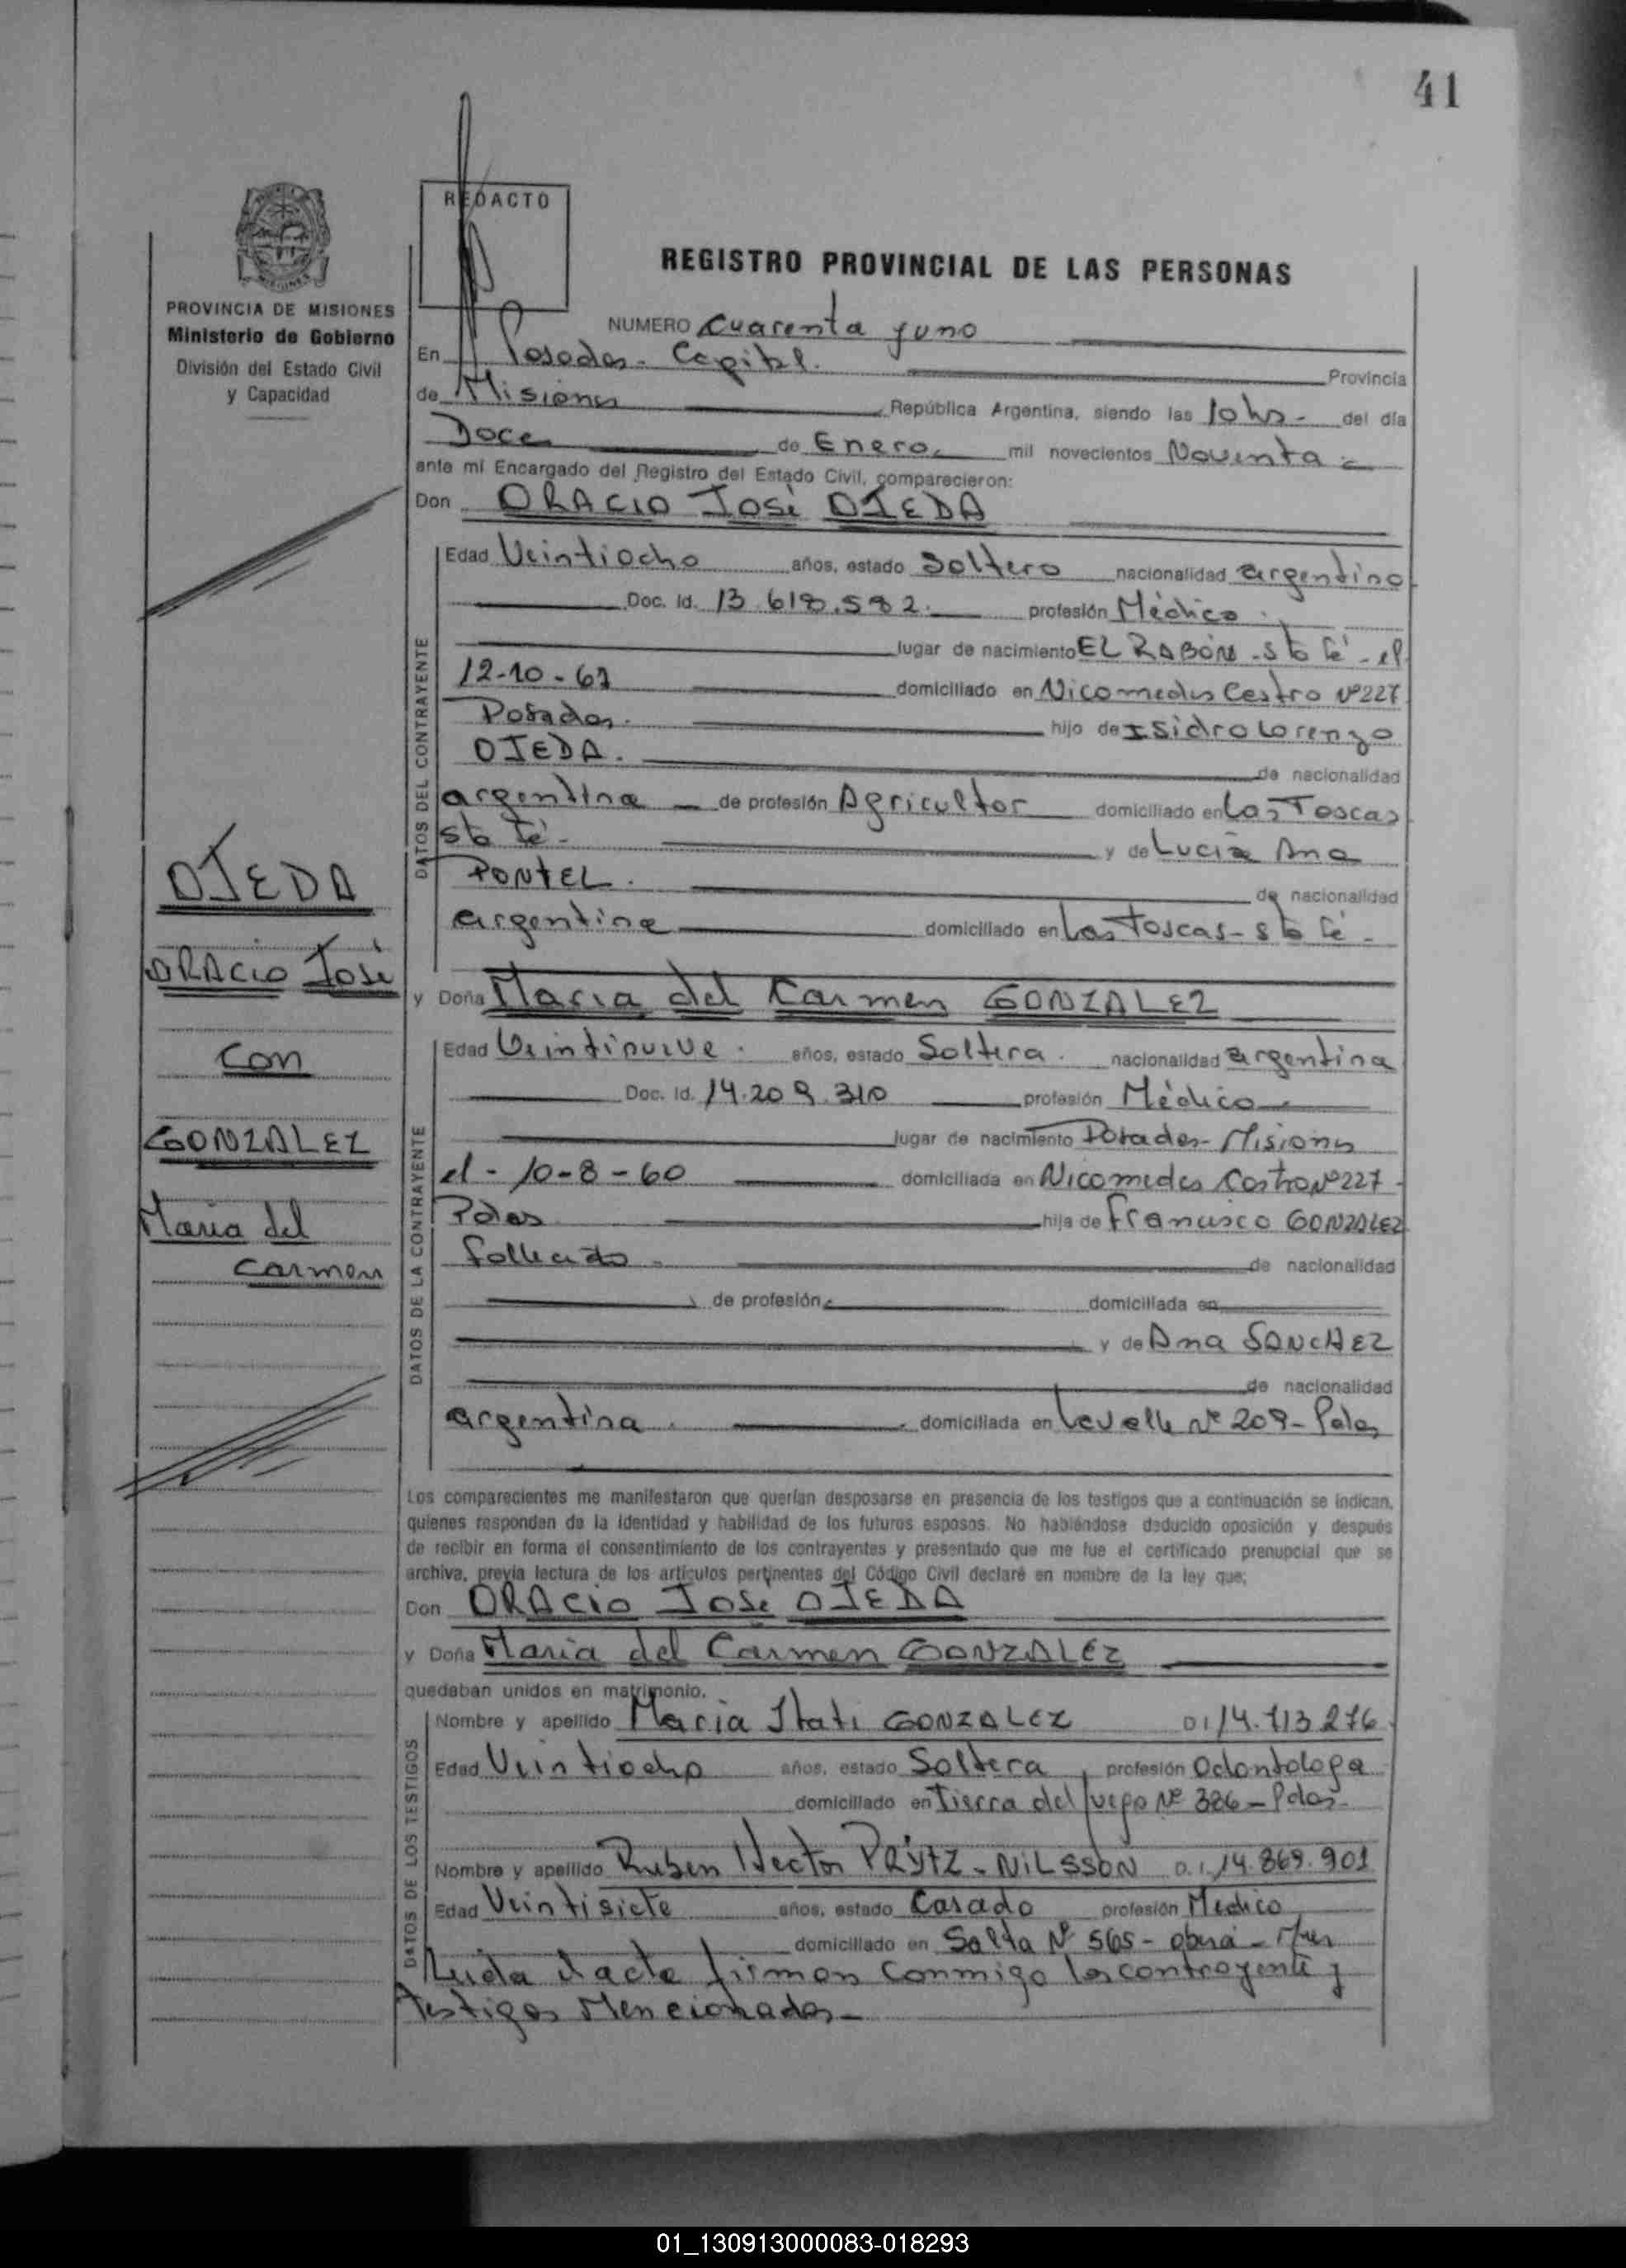 41
REDACTO
REGISTRO PROVINCIAL DE LAS PERSONAS
PROVINCIA DE MISIONES
Ministerio de Gobierno
División del Estado Civil
y Capacidad
NUMERO Cuarenta y uno
En Posadas - Capital. Provincia
de Misiones República Argentina, siendo las 10 hs - del día
Doce de Enero mil novecientos Noventa
ante mí Encargado del Registro del Estado Civil, comparecieron:
Don ORACIO José OJEDA
DATOS DEL CONTRAYENTE
Edad Veintiocho años, estado Soltero nacionalidad argentino
Doc. Id. 13.618.582. profesión Médico
lugar de nacimiento EL RABÓN - Sta Fé - el
12-10-61 domiciliado en Nicomedes Castro Nº 227
Posadas. hijo de Isidro Lorenzo
OJEDA. de nacionalidad
argentina de profesión Agricultor domiciliado en Las Toscas
Sta Fé - y de Lucía Ana
PONTEL. de nacionalidad
argentina domiciliado en Las Toscas - Sta Fé -
OJEDA
ORACIO José
con
GONZALEZ
María del
Carmen
y Doña María del Carmen GONZALEZ
DATOS DE LA CONTRAYENTE
Edad Veintinueve. años, estado Soltera. nacionalidad argentina
Doc. Id. 14.209.310 profesión Médico
lugar de nacimiento Posadas - Misiones
el - 10-8-60 domiciliada en Nicomedes Castro Nº 227 -
Pdas hija de Francisco GONZALEZ
fallecido - de nacionalidad
de profesión domiciliada en
y de Ana SANCHEZ
de nacionalidad
argentina. domiciliada en Lavalle Nº 209 - Pdas
Los comparecientes me manifestaron que querían desposarse en presencia de los testigos que a continuación se indican,
quienes responden de la identidad y habilidad de los futuros esposos. No habiéndose deducido oposición y después
de recibir en forma el consentimiento de los contrayentes y presentado que me fue el certificado prenupcial que se
archiva, previa lectura de los artículos pertinentes del Código Civil declaré en nombre de la ley que:
Don ORACIO José OJEDA
y Doña María del Carmen GONZALEZ
quedaban unidos en matrimonio.
DATOS DE LOS TESTIGOS
Nombre y apellido María Itatí GONZALEZ DI 14.713.276
Edad Veintiocho años, estado Soltera profesión Odontologa
domiciliado en Tierra del fuego Nº 386 - Pdas -
Nombre y apellido Ruben Hector PRYTZ - NILSSON D.I. 14.869.901
Edad Veintisiete años, estado Casado profesión Medico
domiciliado en Salta Nº 565 - oberá - Mnes
Leida el acta firman conmigo los contrayente y
testigos Mencionados -
01_130913000083-018293